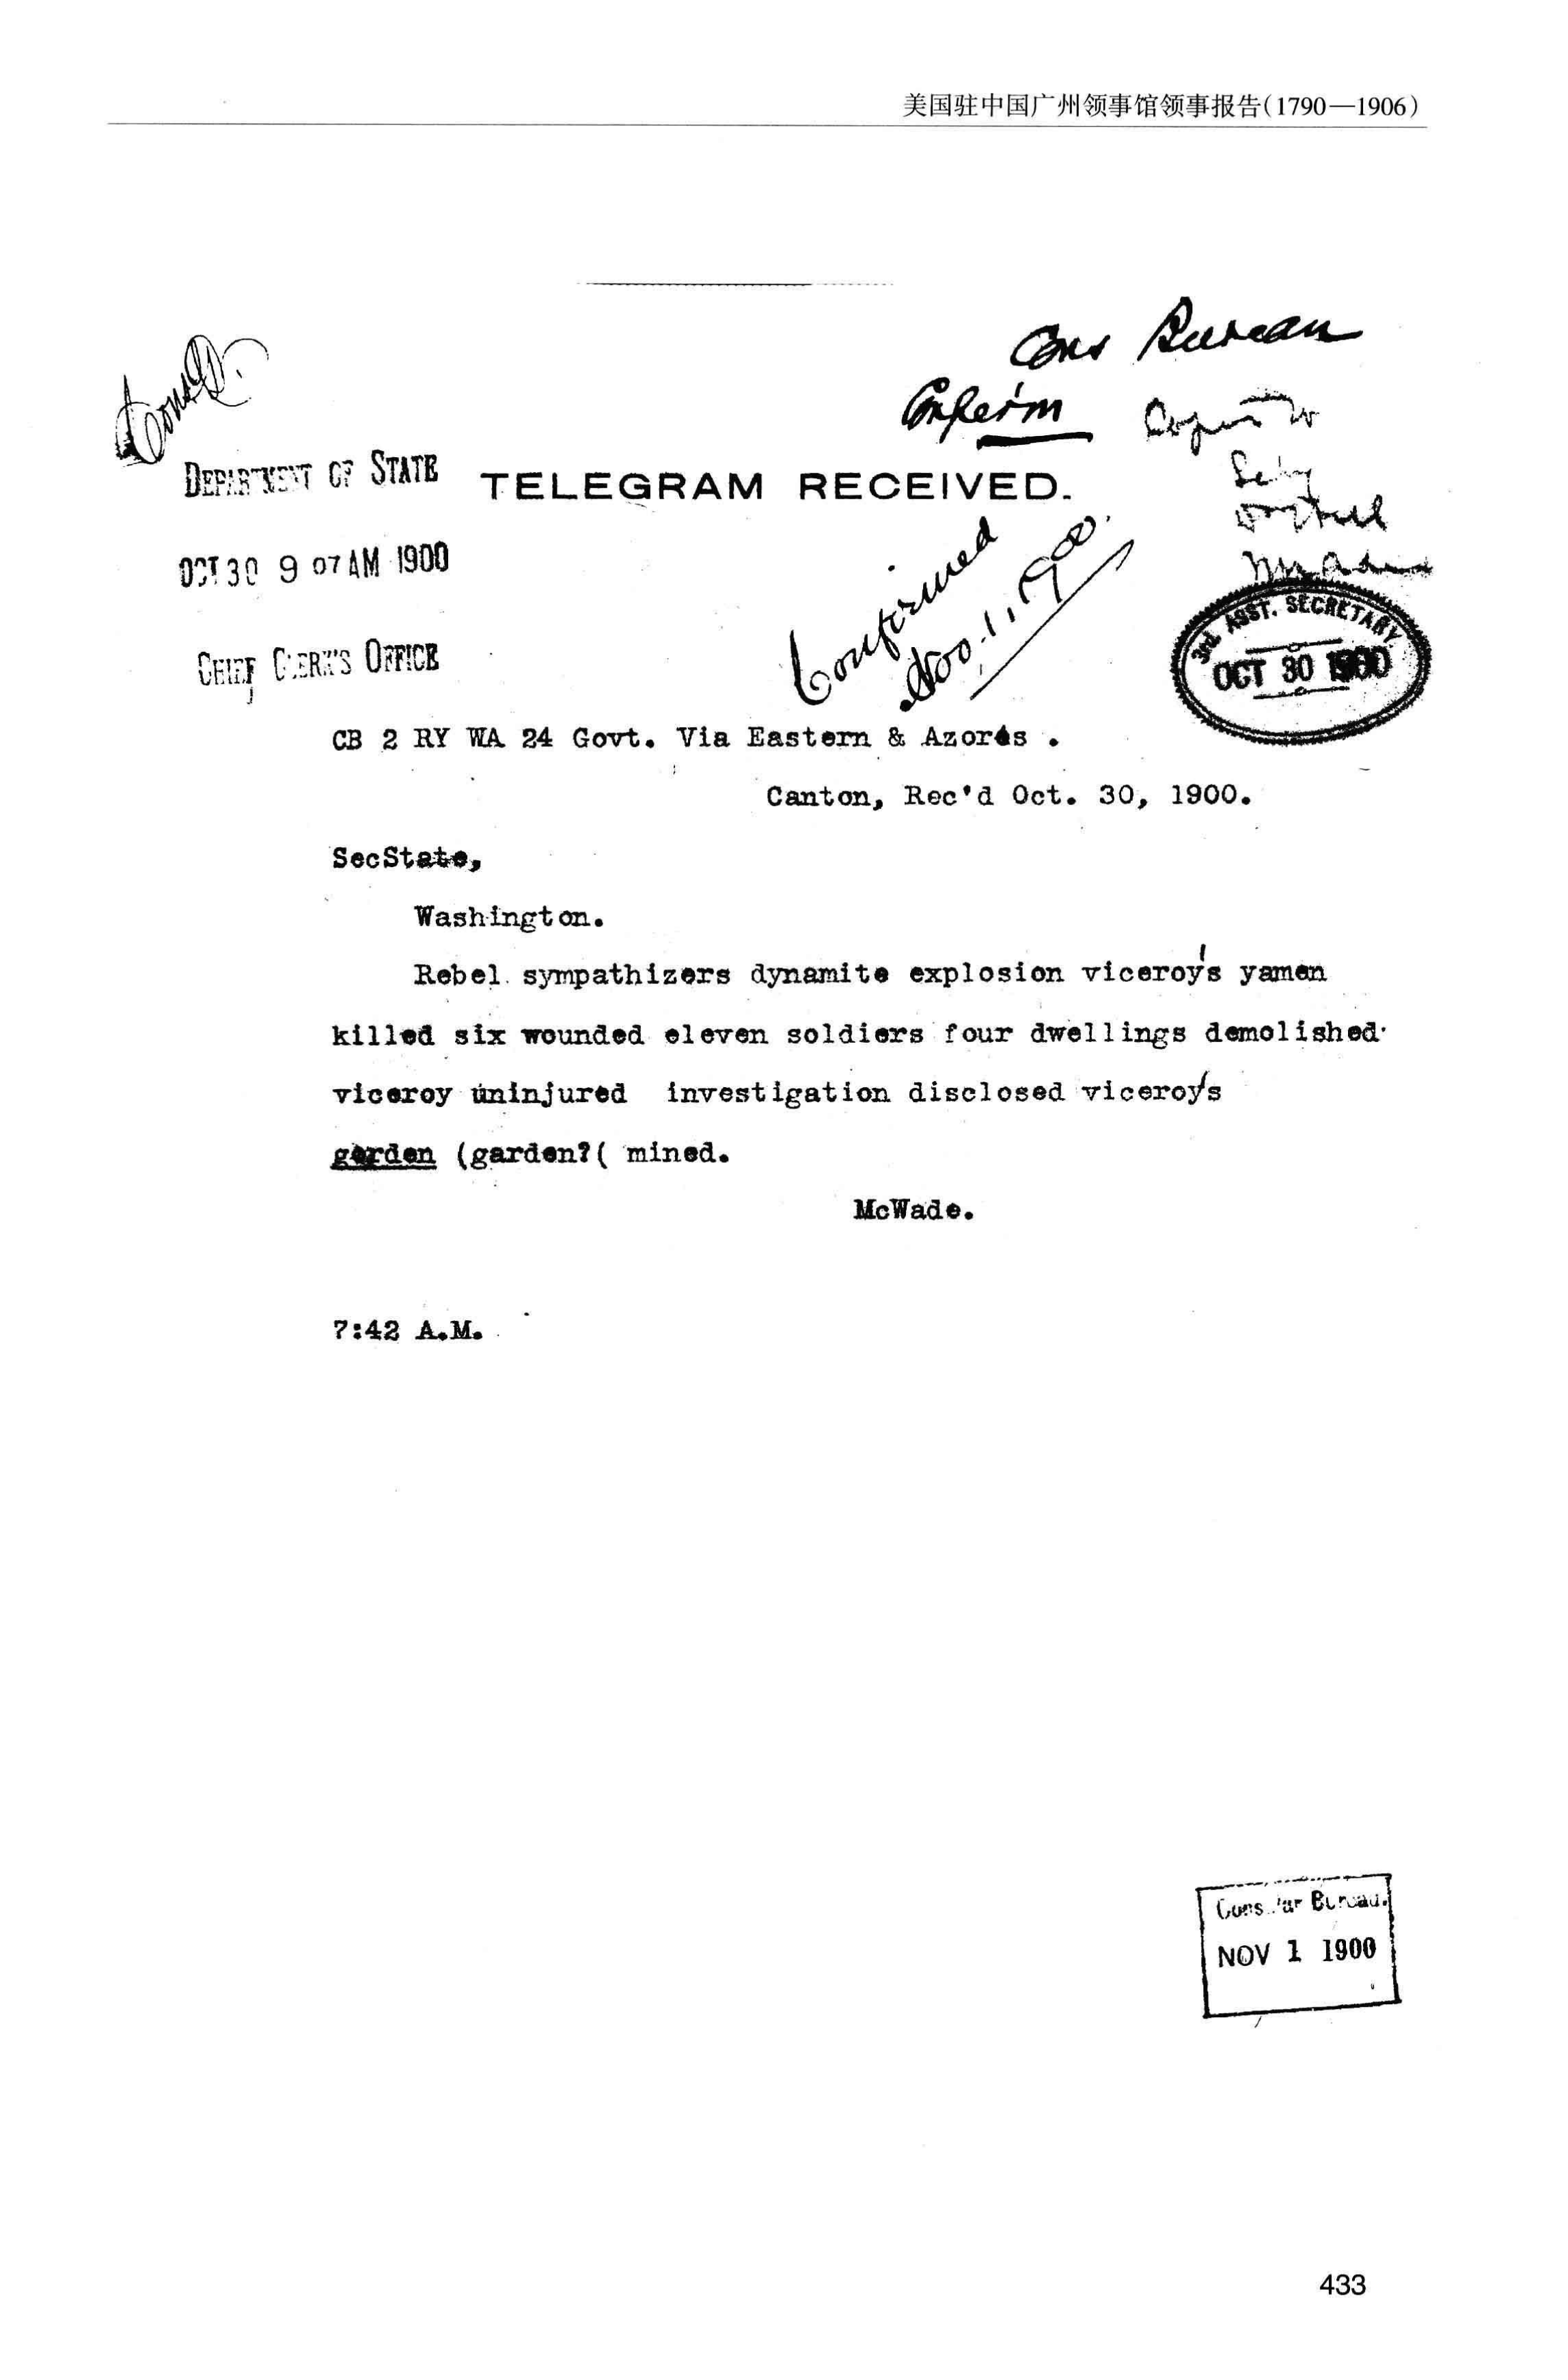 美国驻中国广州领事馆领事报告(1790—1906)
Cons Bureau
Confirm
Copies to
Secy
Dr Hill
Mr Adee
DEPARTMENT OF STATE
TELEGRAM RECEIVED.
OCT 30 9 07 AM 1900
CHIEF CLERK'S OFFICE
Confirmed
Nov. 1, 1900.
3rd ASST. SECRETARY
OCT 30 1900
CB 2 RY WA 24 Govt. Via Eastern & Azores .
Canton, Rec'd Oct. 30, 1900.
SecState,
Washington.
Rebel sympathizers dynamite explosion viceroy's yamen
killed six wounded eleven soldiers four dwellings demolished
viceroy uninjured investigation disclosed viceroy's
gerden (garden?( mined.
McWade.
7:42 A.M.
Consular Bureau.
NOV 1 1900
433